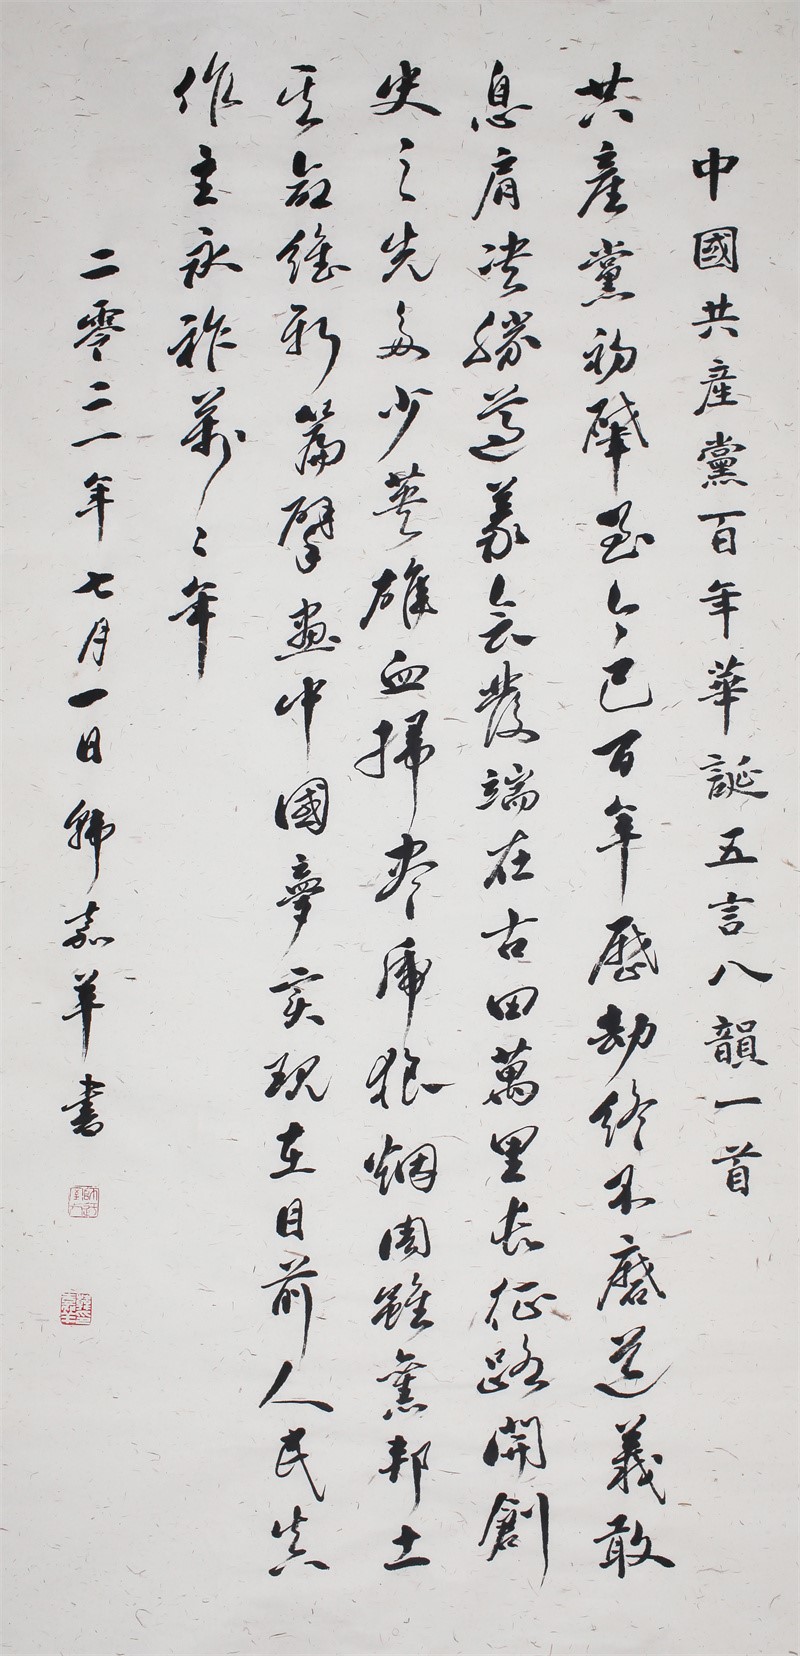 中國共產黨百年華誕五言八韻一首
共產黨初肇至今已百年歷劫終不磨道義敢
息肩决勝遵義會發端在古田萬里長征路開創
史之先多少英雄血掃尽虎狼烟周雖舊邦土
其命維新篇擘畫中國夢实現在目前人民真
作主永祚萬々年
二零二一年七月一日嘉羊書